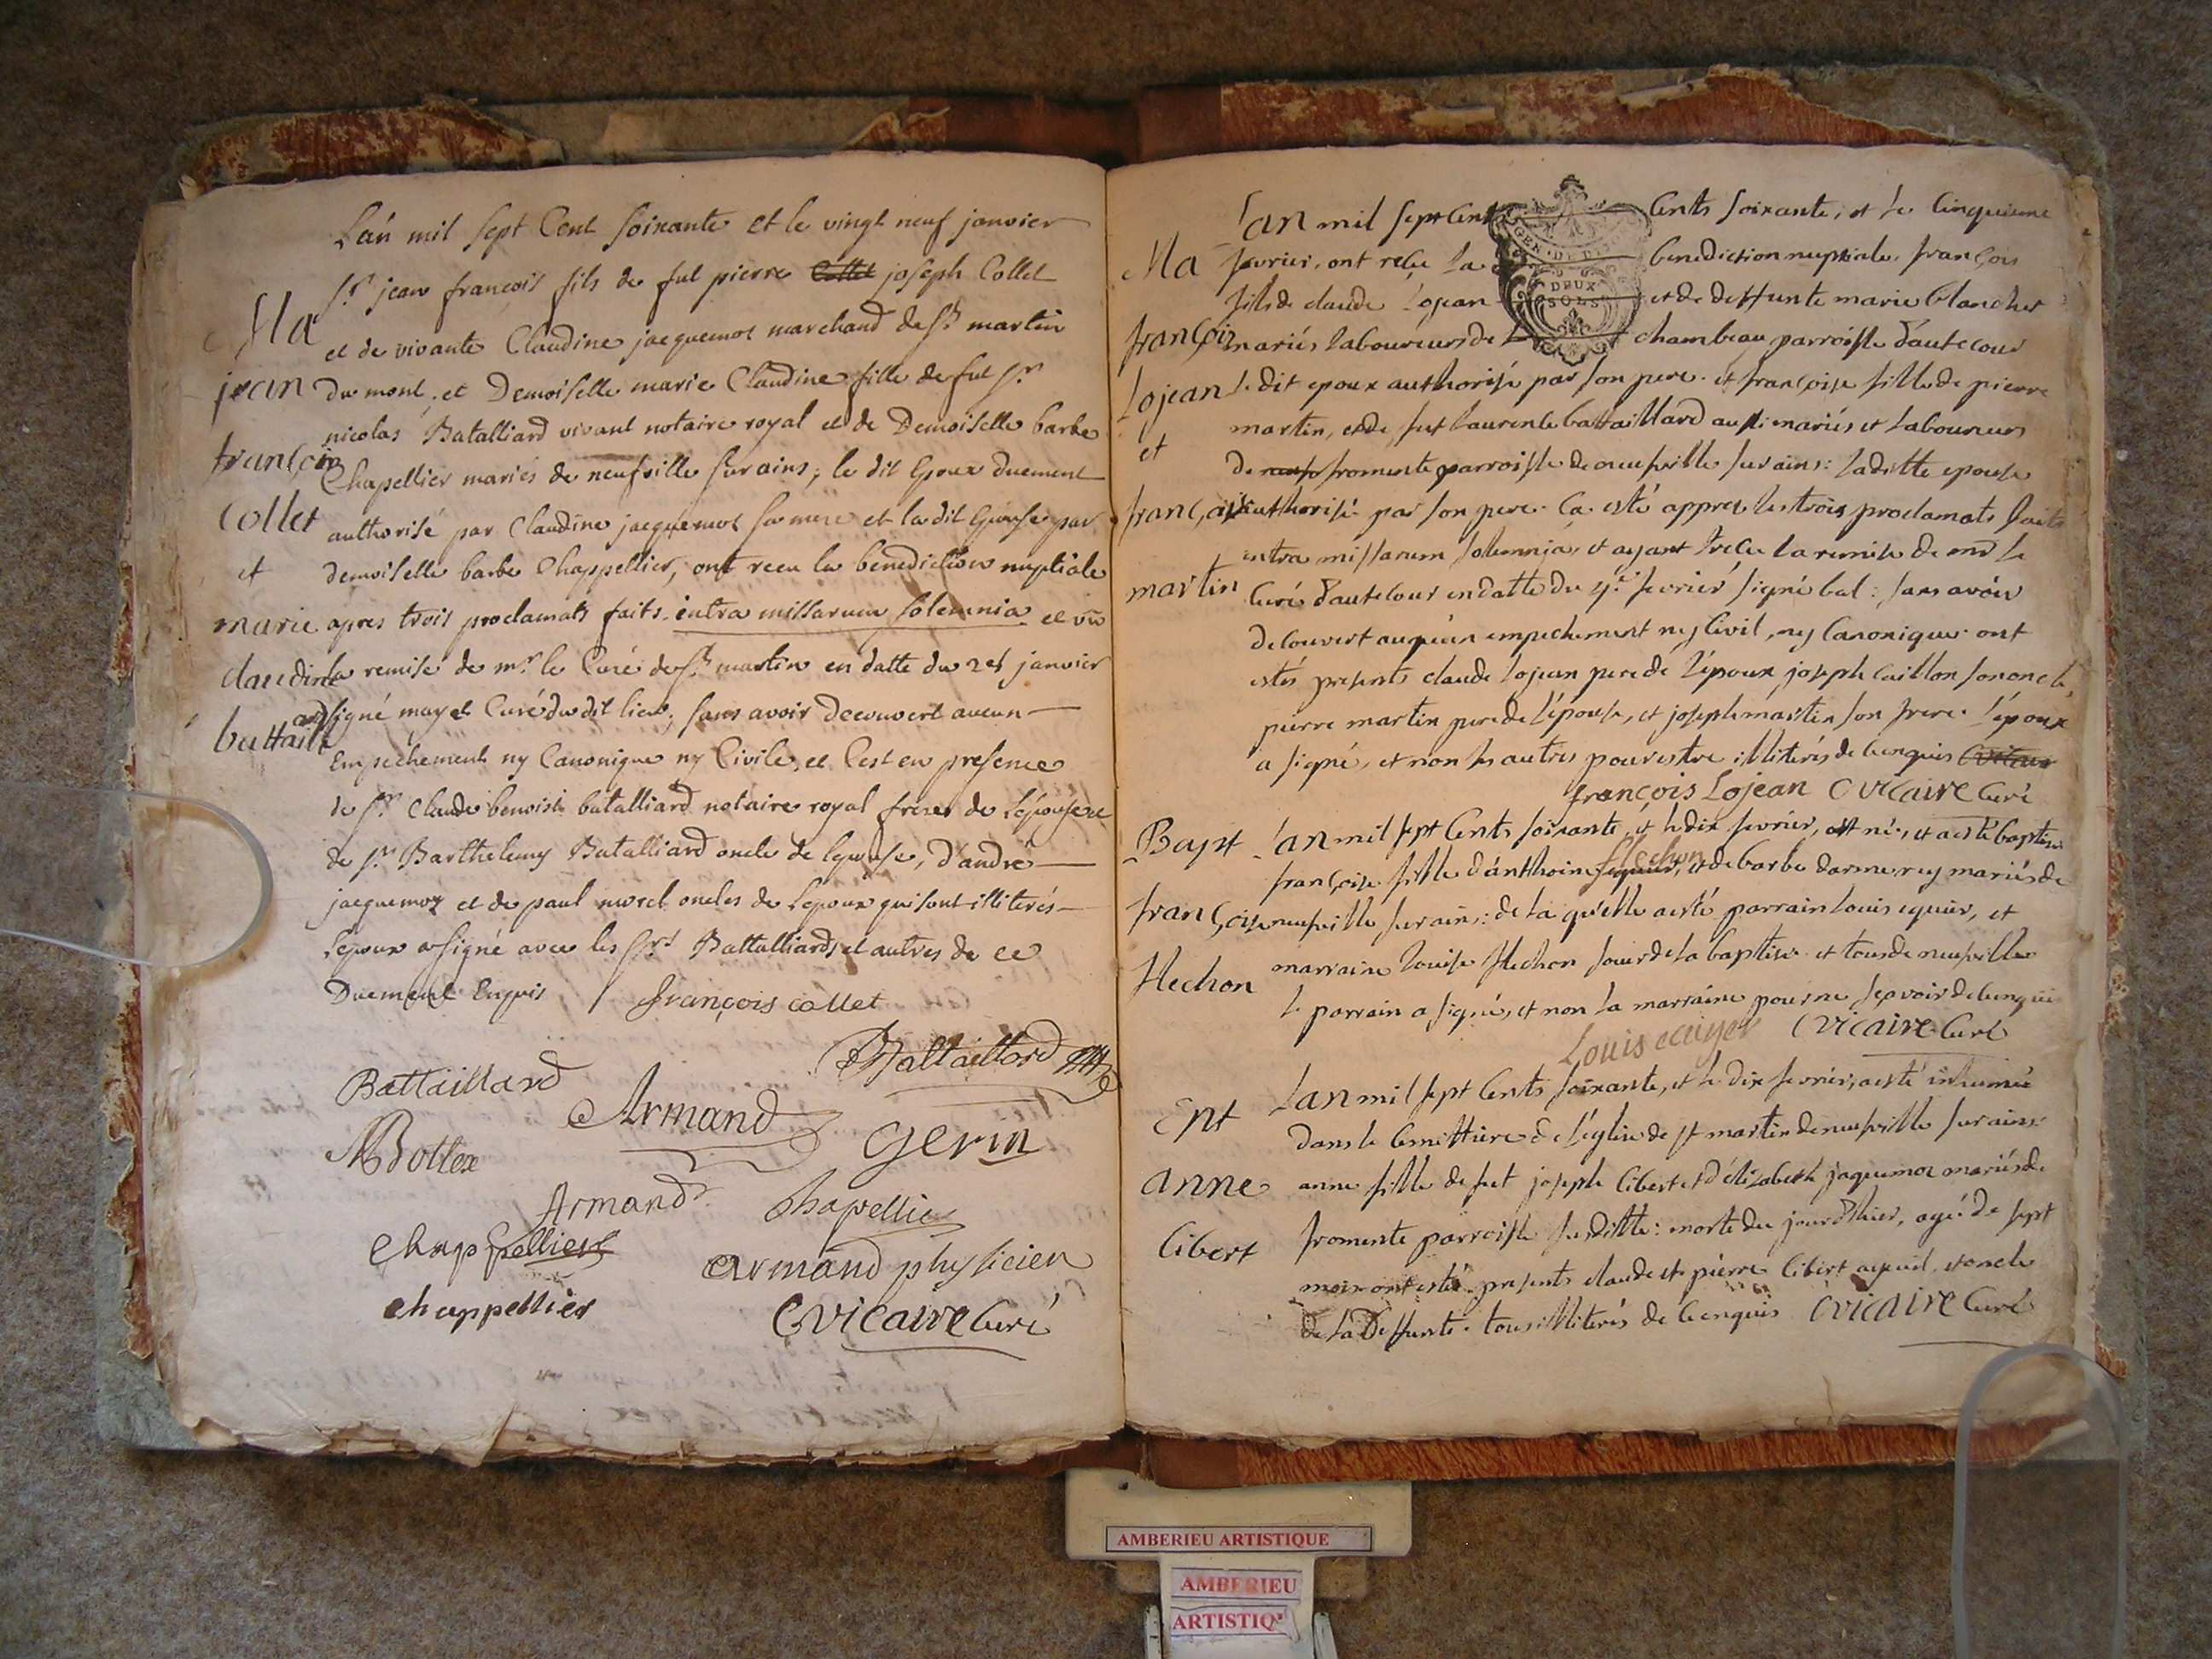 L'an mil sept Cent soixante et le vingt neuf janvier
Sr jean françois fils de fut pierre Collet joseph Collet
et de vivante Claudine jacquemot marchand de St martin
du mont. et Demoiselle marie Claudine fille de fut Sr
nicolas Batalliard vivant notaire royal et de Demoiselle barbe
Chapellier mariés de neufville sur ains; le dit Epoux duement
authorisé par Claudine jacquemot sa mere et la dit Epouse par
demoiselle barbe Chappellier, ont receu la benediction nuptiale
apres trois proclamats faits intra missarum solemnia et vû
la remise de mr le Curé de St martin en datte du 28 janvier
signé mayet Curé du dit lieu; sans avoir decouvert aucun
Empechement ny Canonique ny Civile, et Cest en presence
de Sr Claude benoist batalliard notaire royal frere de Lepouse et
de Sr Barthelemy Batalliard oncle de lepouse, d'andré
jacquemoz et de paul morel oncles de Lepoux qui sont illiterés
lepoux a signé avec les Srs Battalliards et autres de ce
Duement Enquis françois collet
Ma
jean
françois
Collet
et
marie
claudine
battailliard
Battaillard
Battaillard
Armand
MBottex
gerin
Armand
Chapellier
Chappellier
armand physicien
chappellier
Cvicaire Curé
L'an mil sept Cents Cents soixante, et le Cinquieme
fevrier, ont reçu la benediction nuptiale françois
fils de claude Lojean et de deffunte marie blanchet
mariés laboureurs de chambeau parroisse d'autecour
le dit epoux authorisé par son pere. et françoise fille de pierre
martin, et de fut laurence battaillard aussi mariés et laboureurs
de fromente parroisse de neufville sur ains: la ditte epouse
authorisé par son pere. Ca esté appres les trois proclamats faits
intra missarum solemnia, et ayant reçu la remise de mr le
Curé d'autecour en datte du 4e fevrier signé bal: sans avoir
decouvert aucun empechement ny Civil, ny Canonique. ont
estés presents claude lojean pere de l'époux joseph Caillon son oncle,
pierre martin pere de l'épouse, et joseph martin son frere. l'époux
a signé, et non les autres pour estre illiterés de ce enquis Cvicaire
françois Lojean Cvicaire Curé
Ma
françois
Lojean
et
françoise
martin
L'an mil sept Cents soixante, et le dix fevrier, est née, et a esté baptisée
françoise fille d'anthoine flechon, et de barbe darmerey mariés de
neufville sur ains: de la qu'elle a esté parrain louis equier, et
marraine louise flechon soeur de la baptisée. et tous de neufville
le parrain a signé, et non la marraine pour ne sçavoir de ce enquis
Louis Cvicaire Curé
Bapt
françoise
flechon
L'an mil sept Cents soixante, et le dix fevrier, a esté inhumée
dans le Cemettiere de l'église de st martin de neufville sur ains:
anne fille de fut joseph Cibert et d'élizabeth jaquemoz mariés de
fromente parroisse susditte: morte du jour d'hier, agé de sept
mois. ont estés presents claude et pierre Cibert ayeuil, et oncle
de la Deffunte. tous illiterés de ce enquis Cvicaire Curé
Ent
anne
Cibert
DEUX
SOLS
AMBERIEU ARTISTIQUE
AMBERIEU
ARTISTIQ